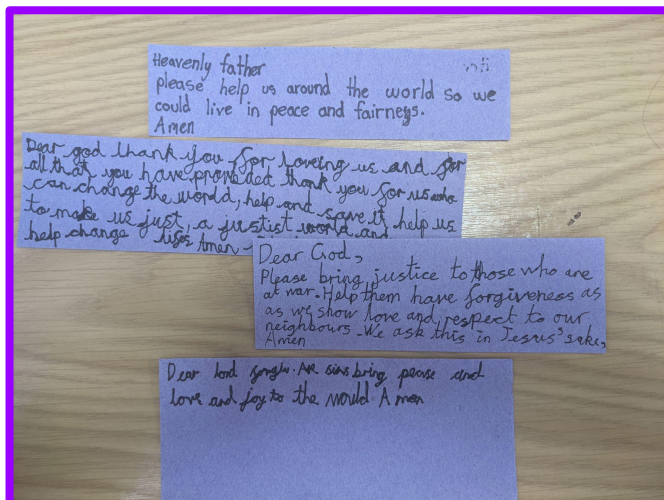 Heavenly father
please help us around the world so we
could live in peace and fairneys.
Amen
Dear god thank you for loveing us and for
all that you have provided thank you for us who
can change the world, help and save it, help us
to make us just, a justist world and
help change lifes Amen
Dear God,
Please bring justice to those who are
at war. Help them have forgiveness as
as we show love and respect to our
neighbours. We ask this in Jesus's sake,
Amen
Dear lord sins bring pease and
love and joy to the world Amen